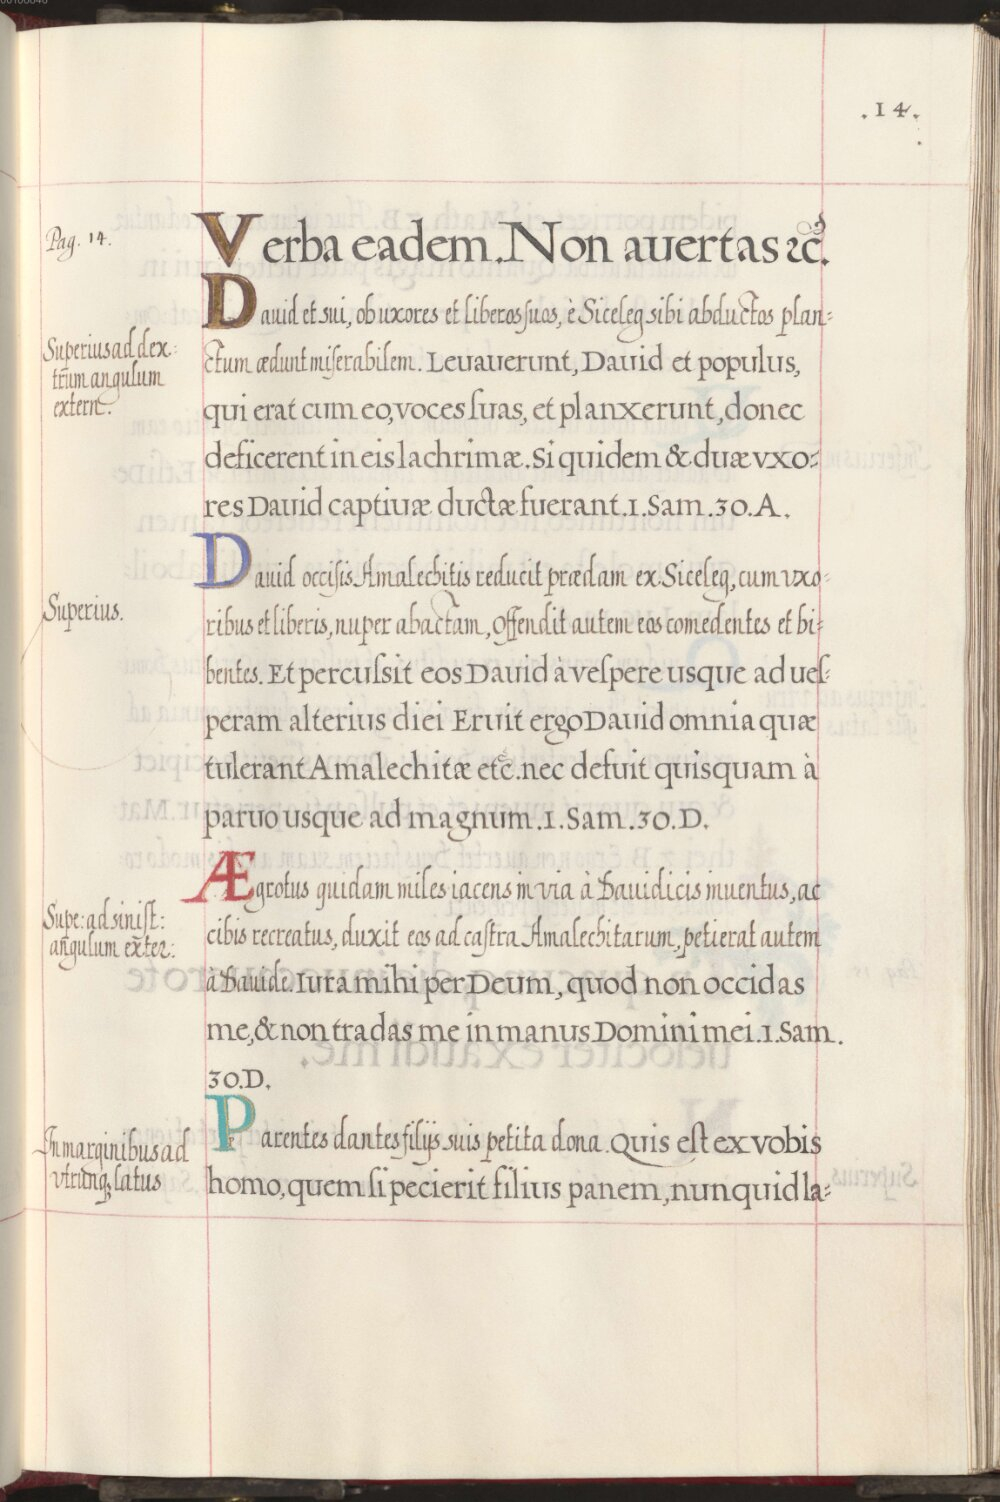 .14.
Pag. 14.
Verba eadem. Non auertas ⁊c̃.
Dauid et sui, ob uxores et liberos suos, è Siceleg sibi abductos plan-
Superius ad dex-
trum angulum
extern:
ctum ædunt miserabilem. Leuauerunt, Dauid et populus,
qui erat cum eo, voces suas, et planxerunt, donec
deficerent in eis lachrimæ. Siquidem & duæ vxo-
res Dauid captiuæ ductæ fuerant. 1. Sam. 30. A.
Superius.
Dauid occisis Amalechitis reducit prædam ex Siceleg, cum vxo-
ribus et liberis, nuper abactam, offendit autem eos comedentes et bi-
bentes. Et percussit eos Dauid à vespere usque ad ues-
peram alterius diei Eruit ergo Dauid omnia quæ
tulerant Amalechitæ etc̃. nec defuit quisquam à
paruo usque ad magnum. 1. Sam. 30. D.
Supe: ad sinist:
angulum exter:
Ægrotus quidam miles iacens in via à Dauidicis inuentus, ac
cibis recreatus, duxit eos ad castra Amalechitarum, petierat autem
à Dauide. Iura mihi per Deum, quod non occidas
me, & non tradas me in manus Domini mei. 1. Sam.
30. D.
In marginibus ad
vtrũnqꝫ latus
Parentes dantes filijs suis petita dona. Quis est ex vobis
homo, quem si pecierit filius panem, nunquid la-